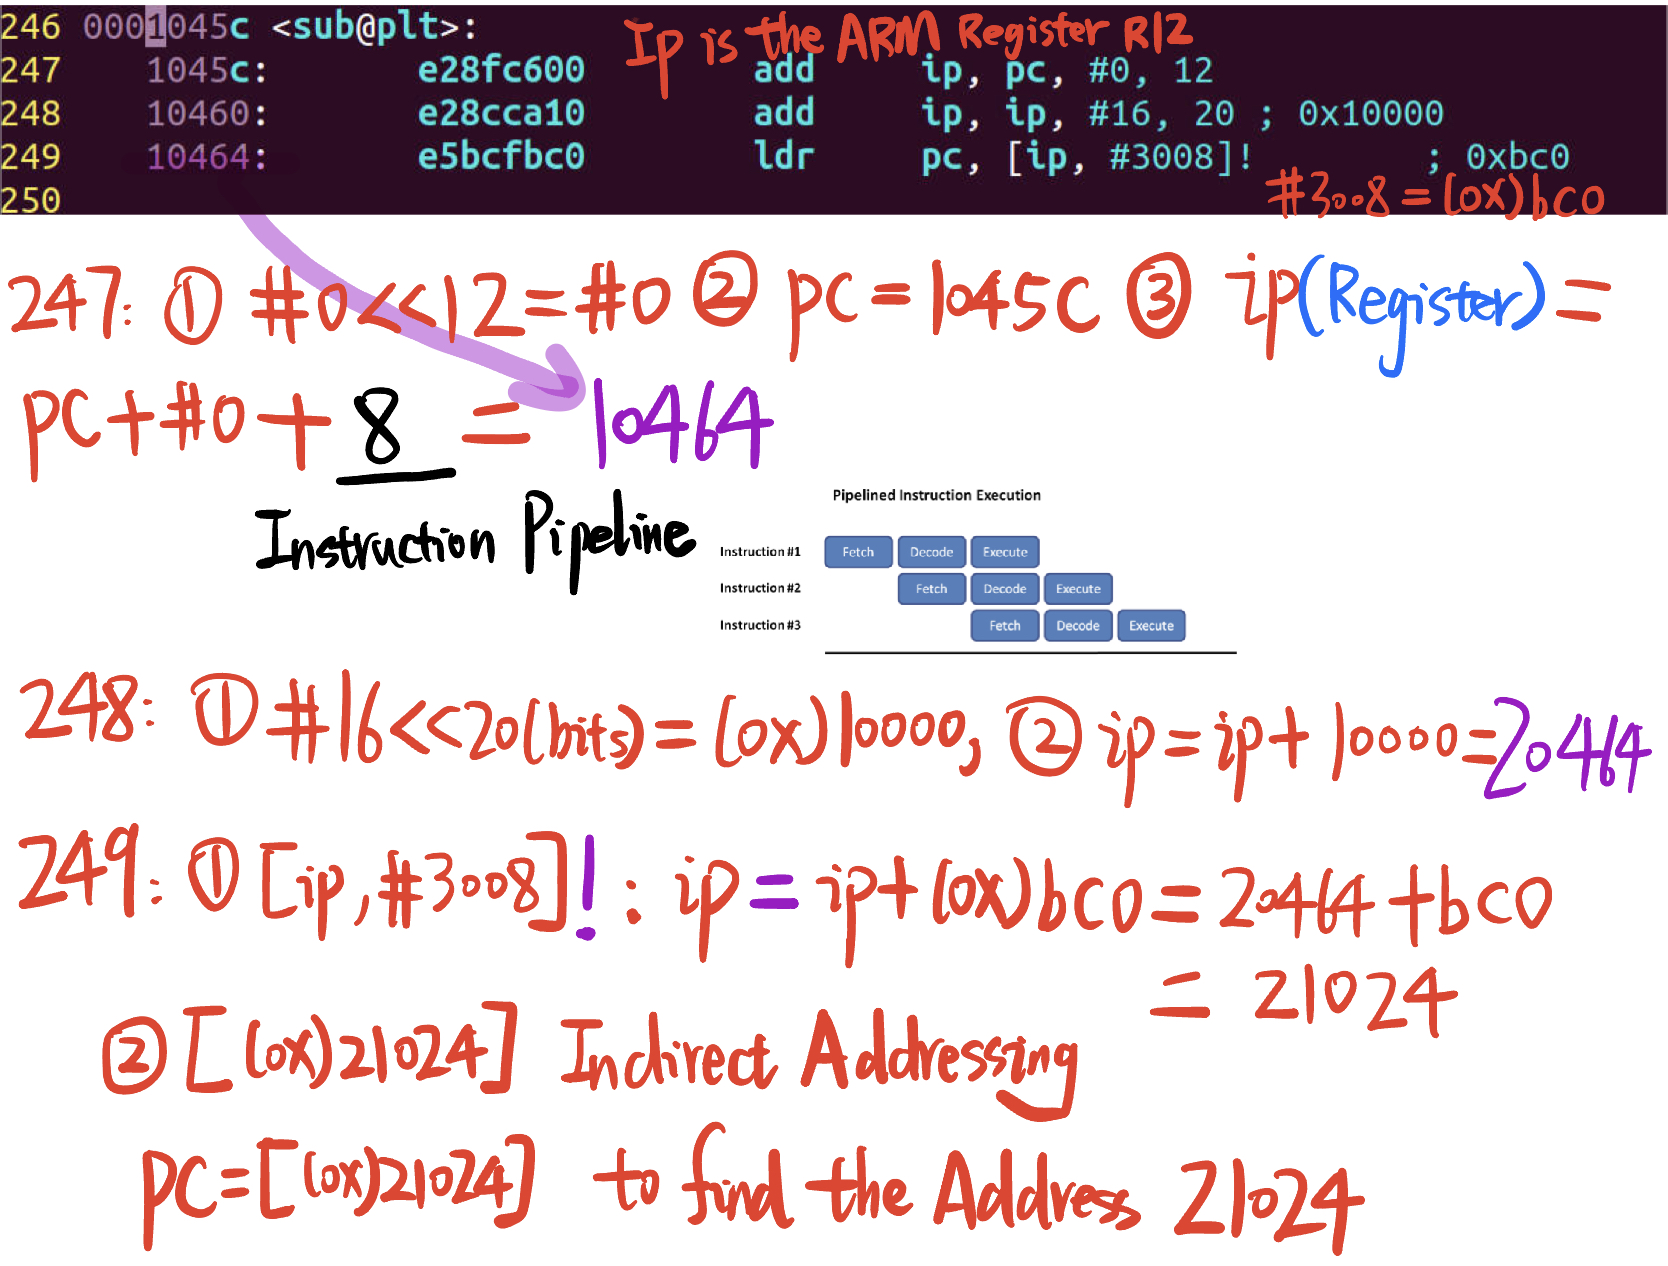 246 0001045c <sub@plt>:
Ip is the ARM Register R12
247 1045c: e28fc600 add ip, pc, #0, 12
248 10460: e28cca10 add ip, ip, #16, 20 ; 0x10000
249 10464: e5bcfbc0 ldr pc, [ip, #3008]! ; 0xbc0
250
#3008 = (0x)bc0
247: ① #0<<12=#0 ② pc=1045C ③ ip(Register)=
PC+#0+8 = 10464
Instruction Pipeline
Pipelined Instruction Execution
Instruction #1 Fetch Decode Execute
Instruction #2 Fetch Decode Execute
Instruction #3 Fetch Decode Execute
248: ① #16<<20(bits)=(0x)10000, ② ip=ip+10000=20464
249: ① [ip,#3008]! : ip=ip+(0x)bc0=20464+bc0
= 21024
② [(0x)21024] Indirect Addressing
PC=[(0x)21024] to find the Address 21024